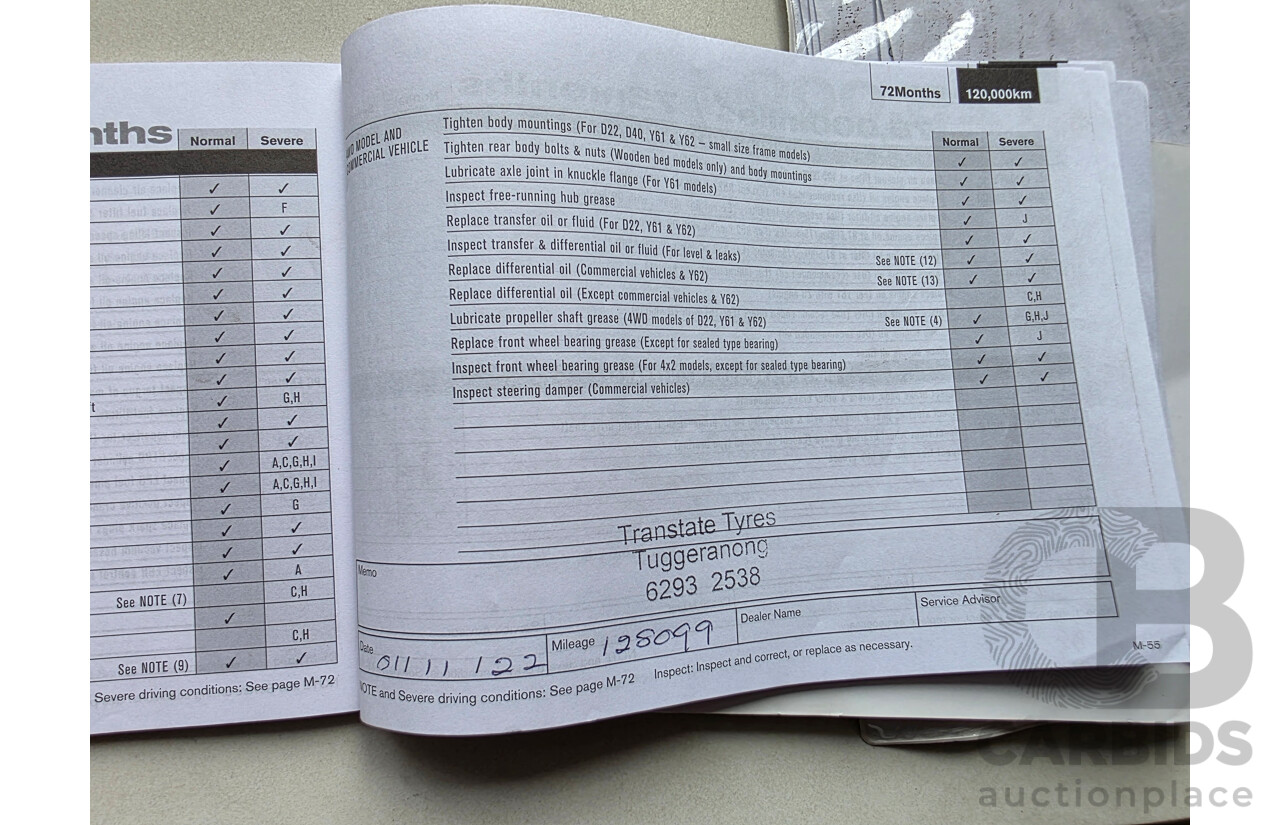 nths Normal Severe
✓ ✓
✓ F
✓ ✓
✓ ✓
✓ ✓
✓ ✓
✓ ✓
✓ ✓
✓ ✓
✓ ✓
t ✓ G,H
✓ ✓
✓ ✓
✓ A,C,G,H,I
✓ A,C,G,H,I
✓ G
✓ ✓
✓ ✓
✓ A
See NOTE (7) C,H
✓
C,H
See NOTE (9) ✓ ✓
Severe driving conditions: See page M-72
72Months 120,000km
Normal Severe
MODEL AND
COMMERCIAL VEHICLE
Tighten body mountings (For D22, D40, Y61 & Y62 – small size frame models) ✓ ✓
Tighten rear body bolts & nuts (Wooden bed models only) and body mountings ✓ ✓
Lubricate axle joint in knuckle flange (For Y61 models) ✓ ✓
Inspect free-running hub grease ✓ J
Replace transfer oil or fluid (For D22, Y61 & Y62) ✓ ✓
Inspect transfer & differential oil or fluid (For level & leaks) See NOTE (12) ✓ ✓
Replace differential oil (Commercial vehicles & Y62) See NOTE (13) ✓ ✓
Replace differential oil (Except commercial vehicles & Y62) C,H
Lubricate propeller shaft grease (4WD models of D22, Y61 & Y62) See NOTE (4) ✓ G,H,J
Replace front wheel bearing grease (Except for sealed type bearing) ✓ J
Inspect front wheel bearing grease (For 4x2 models, except for sealed type bearing) ✓ ✓
Inspect steering damper (Commercial vehicles) ✓ ✓
Transtate Tyres
Tuggeranong
6293 2538
Memo
Date 01/11/22 Mileage 128099 Dealer Name Service Advisor
NOTE and Severe driving conditions: See page M-72 Inspect: Inspect and correct, or replace as necessary. M-55
CB
CARBIDS
auctionplace